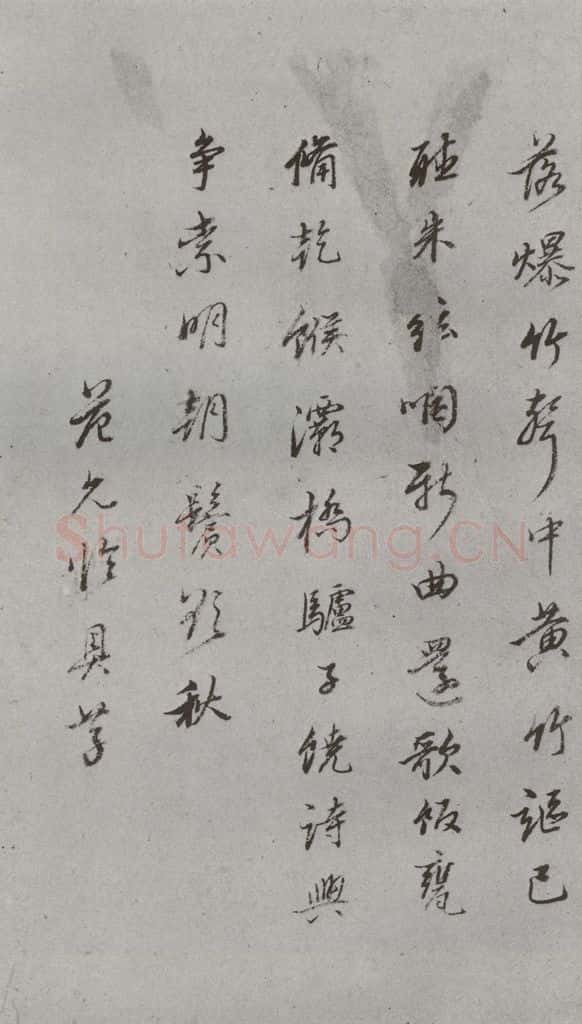 落爆竹聲中黃竹謳已
聽朱絃咽新曲還歌飯甕
備乾餱灞橋驢子饒詩興
争柰明朝鬢欲秋
范允臨具草
Shufawang.CN